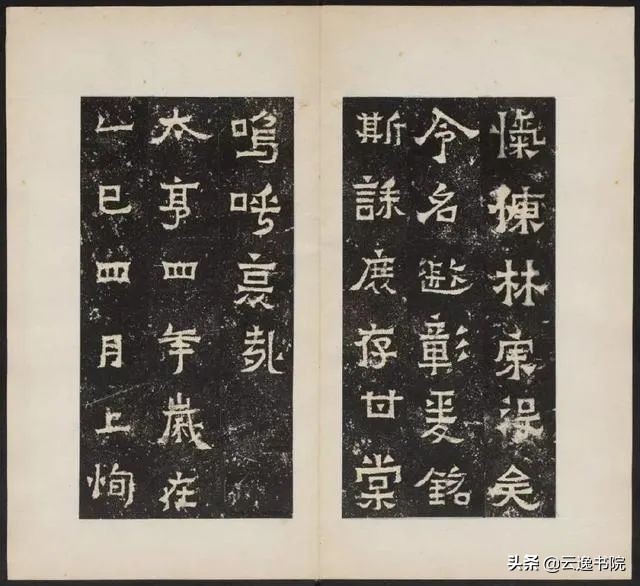 林宗没矣
令名遐彰爰銘
斯誄庶存甘棠
嗚呼哀哉
太亨四年歲在
乙巳四月上恂
头条 @云逸书院